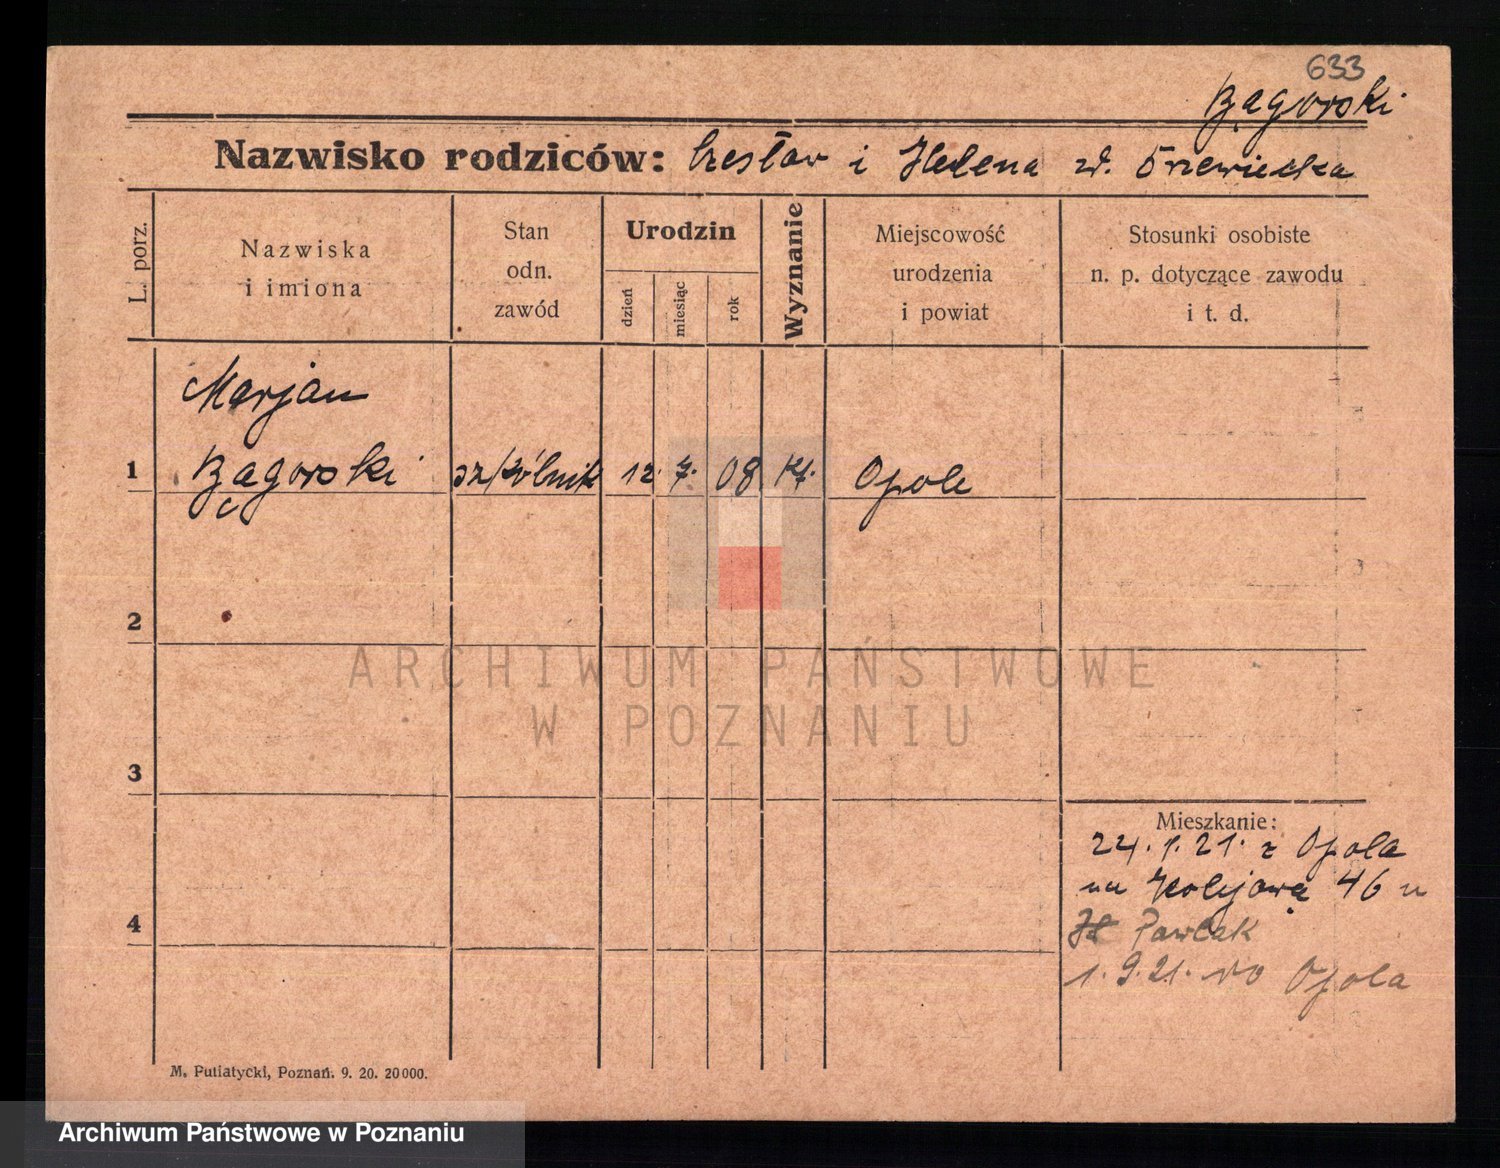 633
Bągorski
Nazwisko rodziców: Czesław i Helena zd.
L. porz.
Nazwiska
i imiona
Stan
odn.
zawód
Urodzin
dzień
miesiąc
rok
Wyznanie
Miejscowość
urodzenia
i powiat
Stosunki osobiste
n. p. dotyczące zawodu
i t. d.
Marjan
1 Bągorski 12. 7. 08 kt. Opole
2
3
4
Mieszkanie:
24. 1. 21. z Opola
na Kolejową 46 u
Pawlak
1. 9. 21. do Opola
M. Putiatycki, Poznań. 9. 20. 20000.
ARCHIWUM PAŃSTWOWE
W POZNANIU
Archiwum Państwowe w Poznaniu